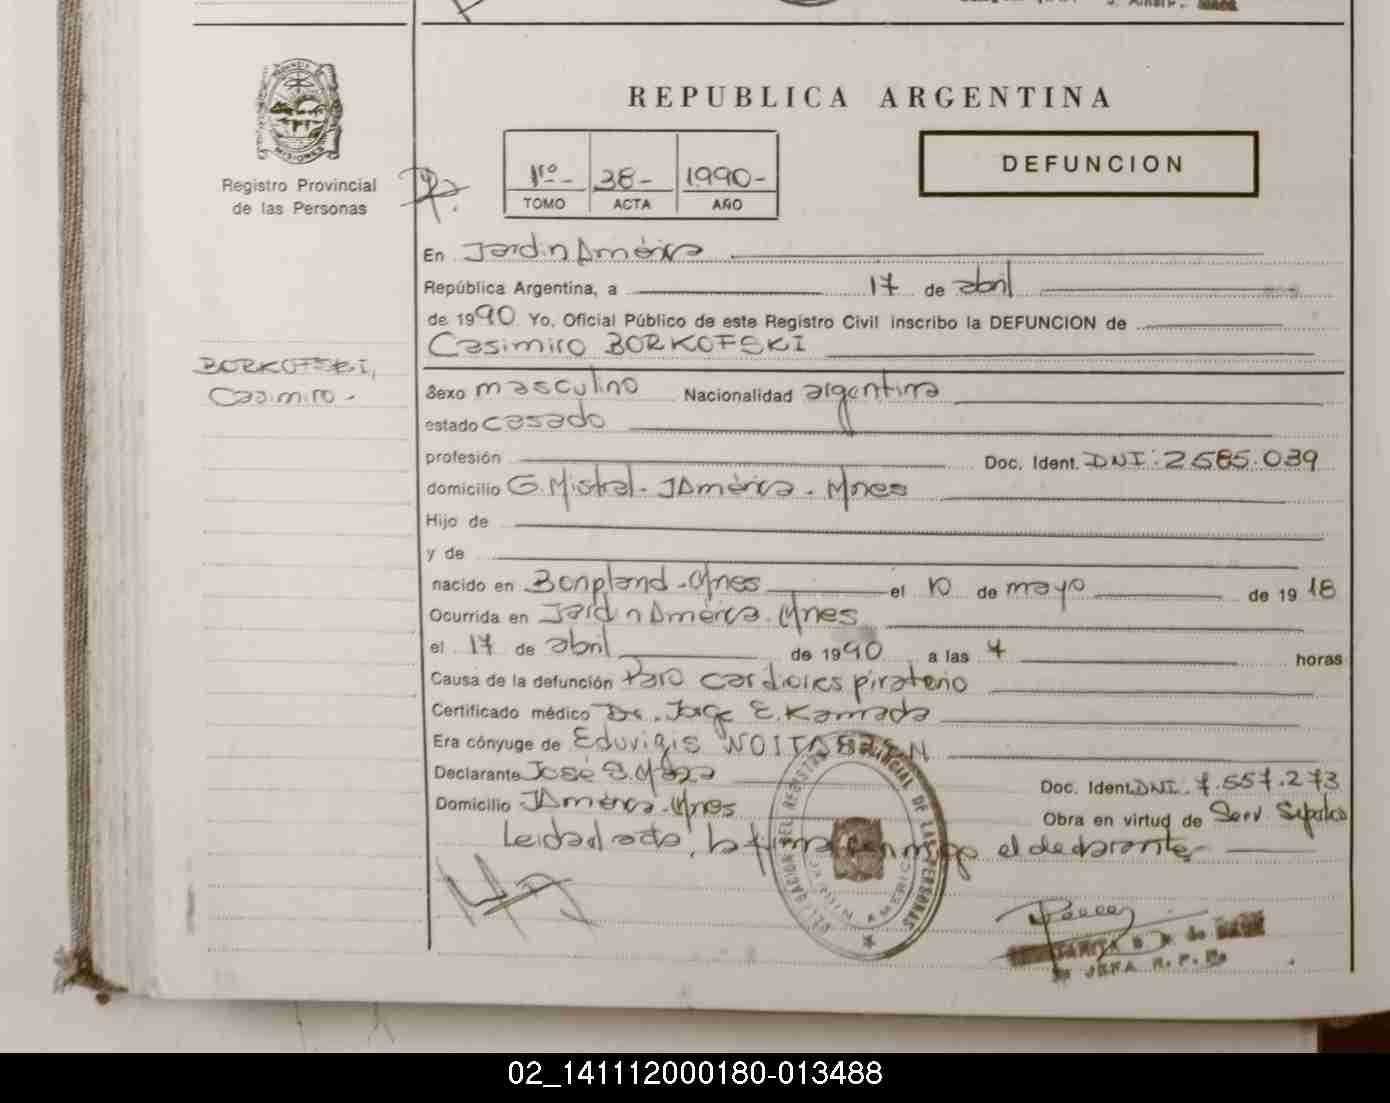 REPUBLICA ARGENTINA
DEFUNCION
MISIONES
Registro Provincial
de las Personas
1º- 38- 1990-
TOMO ACTA AÑO
En Jardin América
República Argentina, a 17 de abril
de 1990 Yo, Oficial Público de este Registro Civil inscribo la DEFUNCION de
Casimiro BORKOFSKI
BORKOFSKI,
Casimiro -
Sexo masculino Nacionalidad argentina
estado casado
profesión Doc. Ident. DNI: 2585.039
domicilio G. Mistral - JAmérica - Mnes
Hijo de
y de
nacido en Bonpland - Mnes el 10 de mayo de 1918
Ocurrida en Jardin América - Mnes
el 17 de abril de 1990 a las 4 horas
Causa de la defunción Paro cardiorespiratorio
Certificado médico Dr. Jorge E. Kamada
Era cónyuge de Eduvigis
Declarante José Doc. Ident. DNI. 7.557.273
Domicilio JAmérica - Mnes Obra en virtud de Serv Sepelio
Leida el acta, la firma conmigo el declarante
DELEGACION DEL REGISTRO PROVINCIAL DE LAS PERSONAS
JARDIN AMERICA
JEFA R. P. P.
02_141112000180-013488